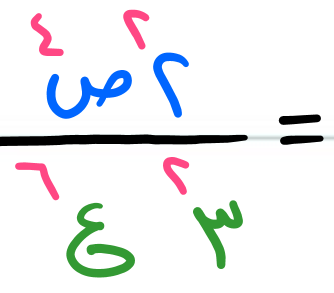 ٢^٢ ص^٤
٣^٢ ع^٦
=